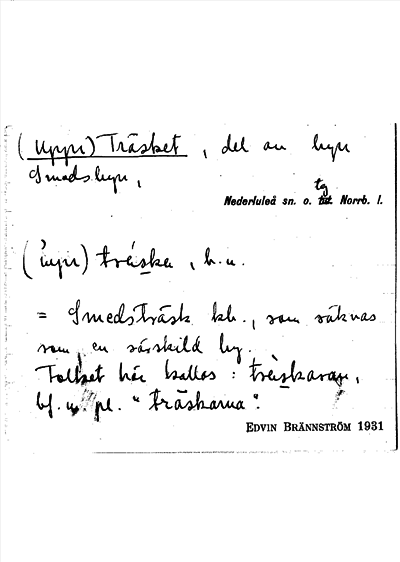 (Uppr) Träsket, del av byn
Smedsbyn,
tg
Nederluleå sn. o. Norrb. l.
träska, b.u.
= Smedsträsk kb., som räknas
som en särskild by.
Folket här kallas:
bf. pl. "träskarna".
EDVIN BRÄNNSTRÖM 1931